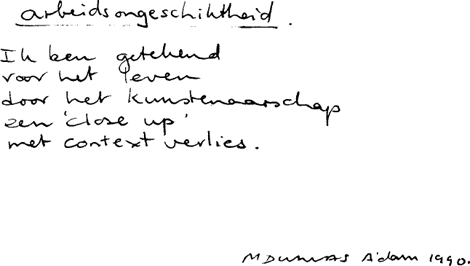 arbeidsongeschiktheid.
Ik ben getekend
voor het leven
door het kunstenaarschap
een 'close up'
met context verlies.
MDUMAS A'dam 1990.